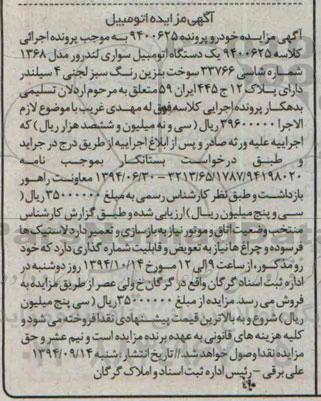 آگهی مزایده اتومبیل
آگهی مزایده خودرو پرونده ۹۴۰۰۶۲۵ به موجب پرونده اجرائی
کلاسه ۹۴۰۰۶۲۵ یک دستگاه اتومبیل سواری لندرور مدل ۱۳۶۸
شماره شاسی ۳۳۷۶۶ سوخت بنزین رنگ سبز لجنی ۴ سیلندر
دارای پلاک ۱۲ ج ۴۴۵ ایران ۵۹ متعلق به مرحوم اردلان تسلیمی
بدهکار پرونده اجرایی کلاسه فوق له مهدی غریب با موضوع لازم
الاجرا ۳۹۶۰۰۰۰۰ ریال (سی و نه میلیون و ششصد هزار ریال) که
اجراییه علیه ورثه صادر و پس از ابلاغ اجراییه از طریق درج در جراید
و طبق درخواست بستانکار بموجب نامه
۳۲۱۳/۶۵/۱۷۸۷/۹۴۱۹۸۰۲۰ – ۱۳۹۴/۰۶/۳۰ معاونت راهور
بازداشت و طبق نظر کارشناس رسمی به مبلغ ۳۵۰۰۰۰۰۰ ریال (
سی و پنج میلیون ریال) ارزیابی شده و طبق گزارش کارشناس
منتخب وضعیت اتاق و موتور نیاز به بازسازی و تعمیر دارد لاستیک ها
فرسوده و چراغ ها نیاز به تعویض و قابلیت شماره گذاری دارد که خود
رو مذکور: از ساعت ۹ الی ۱۲ مورخ ۱۳۹۴/۱۰/۱۴ روز دوشنبه در
اداره ثبت اسناد گرگان واقع در گرگان خ ولی عصر از طریق مزایده به
فروش می رسد. مزایده از مبلغ ۳۵۰۰۰۰۰۰ ریال (سی پنج میلیون
ریال) شروع و به بالاترین قیمت پیشنهادی نقدا فروخته می شود و
کلیه هزینه های قانونی به عهده برنده مزایده است و نیم عشر و حق
مزایده نقدا وصول خواهد شد // تاریخ انتشار: شنبه ۱۳۹۴/۰۹/۱۴
علی برقی – رئیس اداره ثبت اسناد و املاک گرگان